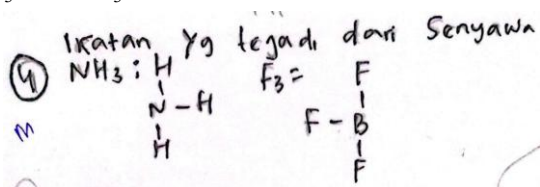 Ikatan yg tejadi dari Senyawa
4 NH3 : H F3 = F
N - H F - B
H F
M